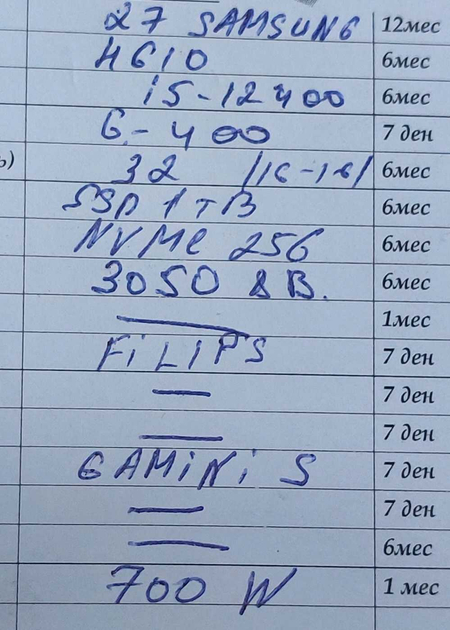 27 SAMSUNG 12мес
H610 6мес
i5-12400 6мес
G-400 7 ден
ь) 32 /16-16/ 6мес
SSD 1TB 6мес
NVMe 256 6мес
3050 8B. 6мес
— 1мес
FiLiPS 7 ден
— 7 ден
— 7 ден
GAMiNi S 7 ден
— 7 ден
— 6мес
700 W 1 мес